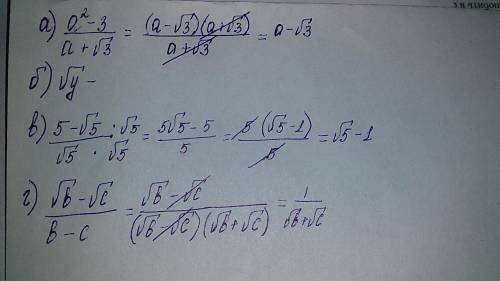 а) (a² - 3)/(a + √3) = ((a - √3)(a + √3))/(a + √3) = a - √3
б) √y -
в) (5 - √5 · √5)/(√5 · √5) = (5√5 - 5)/5 = (5(√5 - 1))/5 = √5 - 1
г) (√b - √c)/(b - c) = (√b - √c)/((√b - √c)(√b + √c)) = 1/(√b + √c)